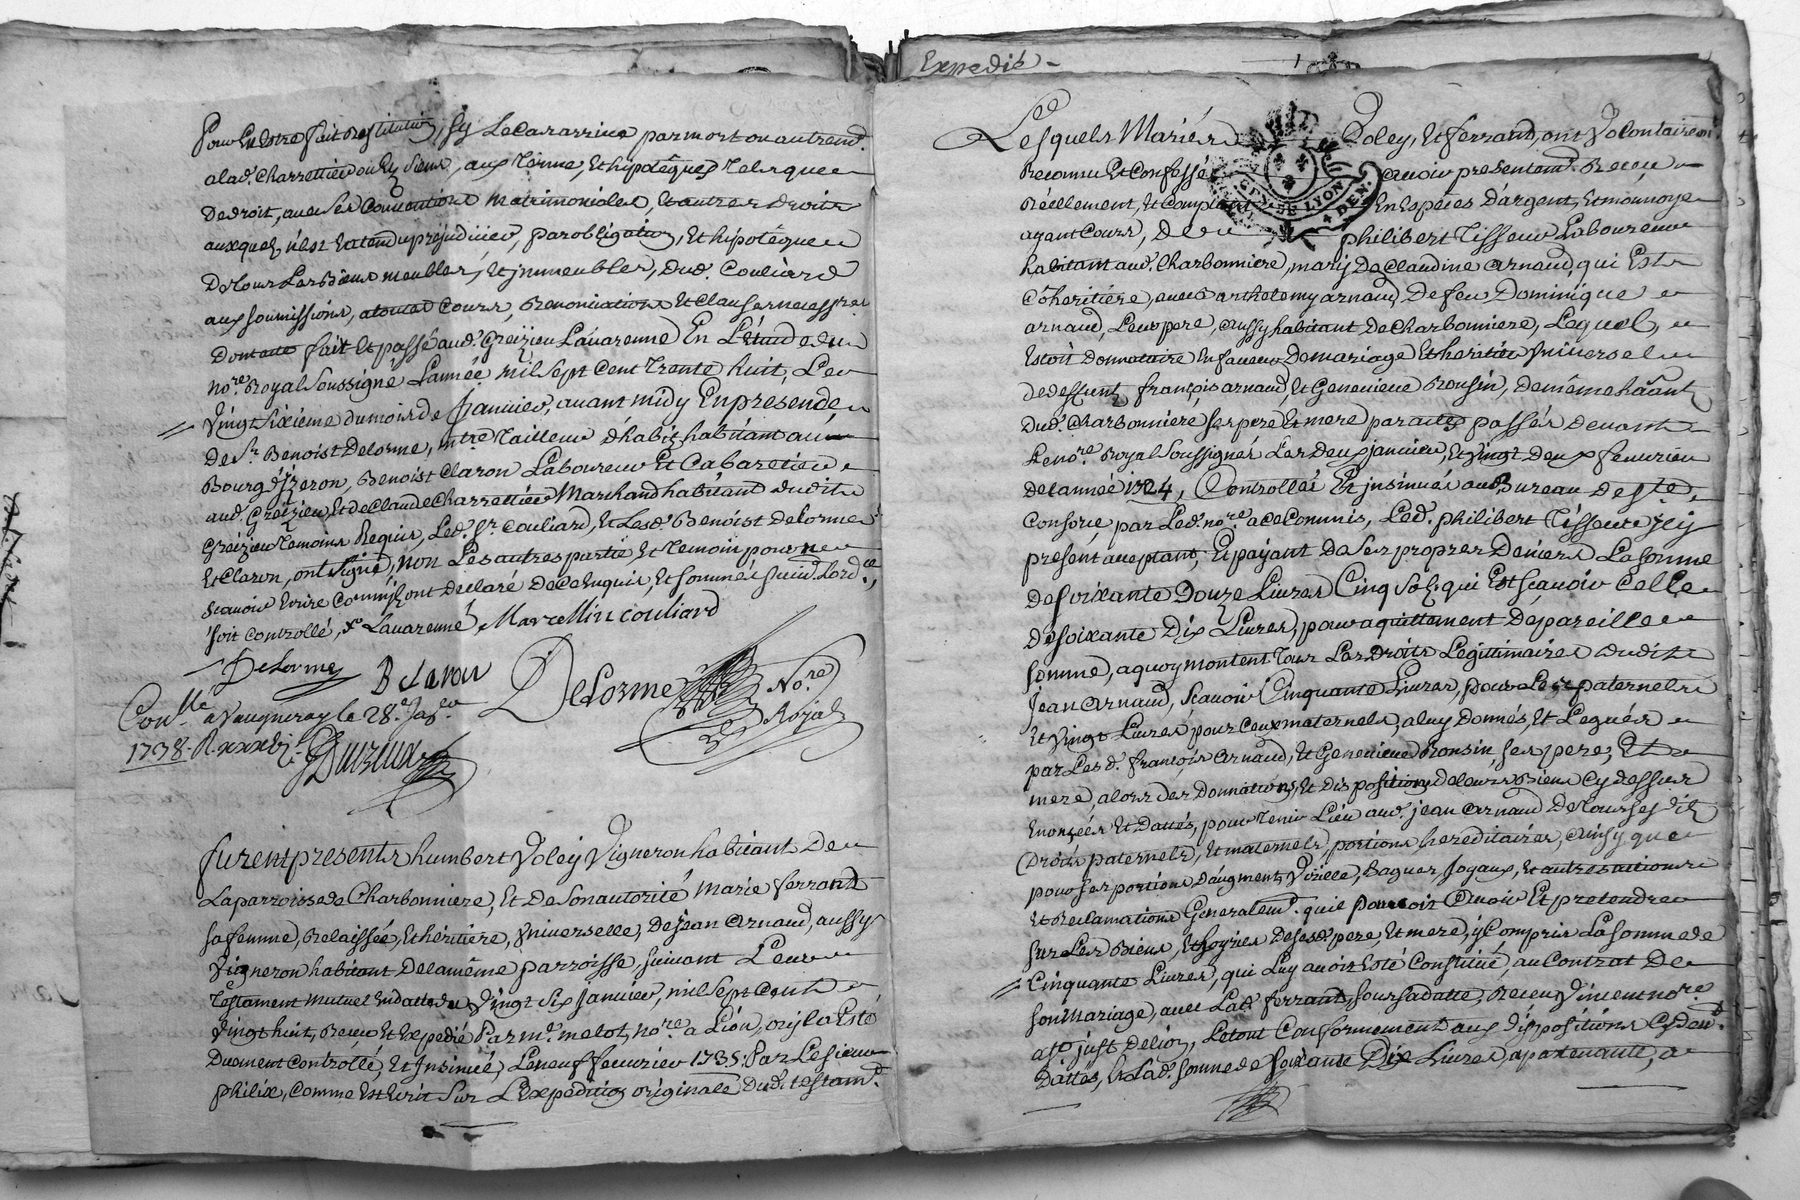 Pour En Estre fait Restitution, sy Le Cas arrive par mort ou autremt.
a lad. Charrettier ou Ez siens, aux Terme, Et hipotêques Tels que
De droit, avec ses Conventions Matrimoniales, Et autres droits
auxquels n'est Entendu préjudicier, par obligation, Et hipotêque
De Tous Les Biens meubles, Et jmmeubles, Dud. Couliard
aux soumissions, a toutes Cours, Renonciations Et Clauses necessres.
Dont acte fait Et passé aud. Greizieu Lavarenne En L'étude du
nore. Royal Soussigné L'année Mil Sept Cent Trente huit, Le
Vingt Sixieme du mois de Janvier, avant midy En presence
De Sr. Benoist Delorme, mtre. Tailleur d'habits habitant au
Bourg d'jzeron, Benoist Claron Laboureur Et Cabaretier
aud. Greizieu, Et de Claude Charrettier Marchand habitant dudit
Greizieu Temoins Requis, Led. Sr. Couliard, Et Lesd. Benoist delorme
Et Claron, ont signé, non Les autres partie, Et Temoin pour ne
scavoir Ecrire Comm'jls ont declaré De ce Enquis, Et sommés suivt. L'ordce.,
soit Controllé, Lavarenne, Marcellin couliard
Delorme B Claron DeLorme Nore. Royal
Conllé a Vaugneray le 28e. Janer.
1738. R. xxxvi s.
furent presents humbert Voley Vigneron habitant De
La parroisse de Charbonniere, Et De Son autorité Marie ferrand
sa femme, Relaissée, Et héritiere, Vniverselle, De jean Arnaud, aussy
Vigneron habitant De la même parroisse, suivant Leur
Testament Mutuel En datte du Vingt Six Janvier, mil sept Cent
Vingt huit, Reçeu Et Expedié Par me. melot, nore. a Lion, ou jl a Esté
Duement Controllé, Et Insinué, Le neuf fevrier 1735. Par Le sieur
philix, Comme Est Ecrit Sur L'Expedition originale Dud. testamt.
Expedié
Lesquels Mariés Voley, Et ferrand, ont Volontairemt.
Reconnu Et Confessé avoir presentemt. Reçeu
Réellement, Et Comptant En Espèces D'argent, Et monnoye
ayant Cours, De philibert Tisseur Laboureur
habitant aud. Charbonniere, mary De Claudine arnaud, qui Est
Cohéritiére, avec Barthelemy arnaud, De feu Dominique
arnaud, Leur pere, aussy habitant De Charbonniere, Lequel,
Estoit Donnataire En faveur De mariage Et héritier Vniversel
de deffunts françois arnaud, Et Genevieve Ronsin, de même hâant
Dud. Charbonniere ses pere Et mere par actes passés devant
Le nore. Royal Soussignés Les Deux janvier, Et Vingt Deux fevrier
De L'année 1724, Controllés Et jnsinués au Bureau De ste.
Consorce, par Led. nore. a ce Commis, Led. philibert Tisseur jcy
present acceptant, Et payant De Ses propres Deniers La somme
De Soixante Douze Livres Cinq Sols, qui Est Scavoir Celle
De Soixante Dix Livres, pour aquittement De pareille
somme, a quoy montent Tous Les Droits Légitimaires dudit
jean Arnaud, Scavoir Cinquante Livres, pour Les paternels
Et Vingt Livres pour Ceux maternels, a luy Donnés, Et Legués
par Lesd. françois Arnaud, Et Genevieve Ronsin, ses pere, Et
mere, alors des Donnations, Et Dispositions de leurs Biens Cy dessus
Enonçées Et Dattés, pour Tenir Lieu aud. jean Arnaud De Tous ses dits
Droits paternels, Et maternels, portions hereditaires, Ainsy que
pour ses portions D'augment, Vizille, Bagues, Joyaux, Et autres actions
Et Reclamations Generalemt. qu'il pouvoir Avoir Et prétendre
sur Les Biens, Et hoyries De sesd. pere, Et mere, y Compris La somme de
Cinquante Livres, qui Luy avoit Esté Constitué, au Contrat De
son Mariage, avec Lad. ferrand, sous sa datte, Reçeu, Vincent nore.
a St. just De lion, Le tout Conformement aux dispositions Cy devt.
Dattés, Et Lad. somme de Soixante Dix Livres, apartenante, a